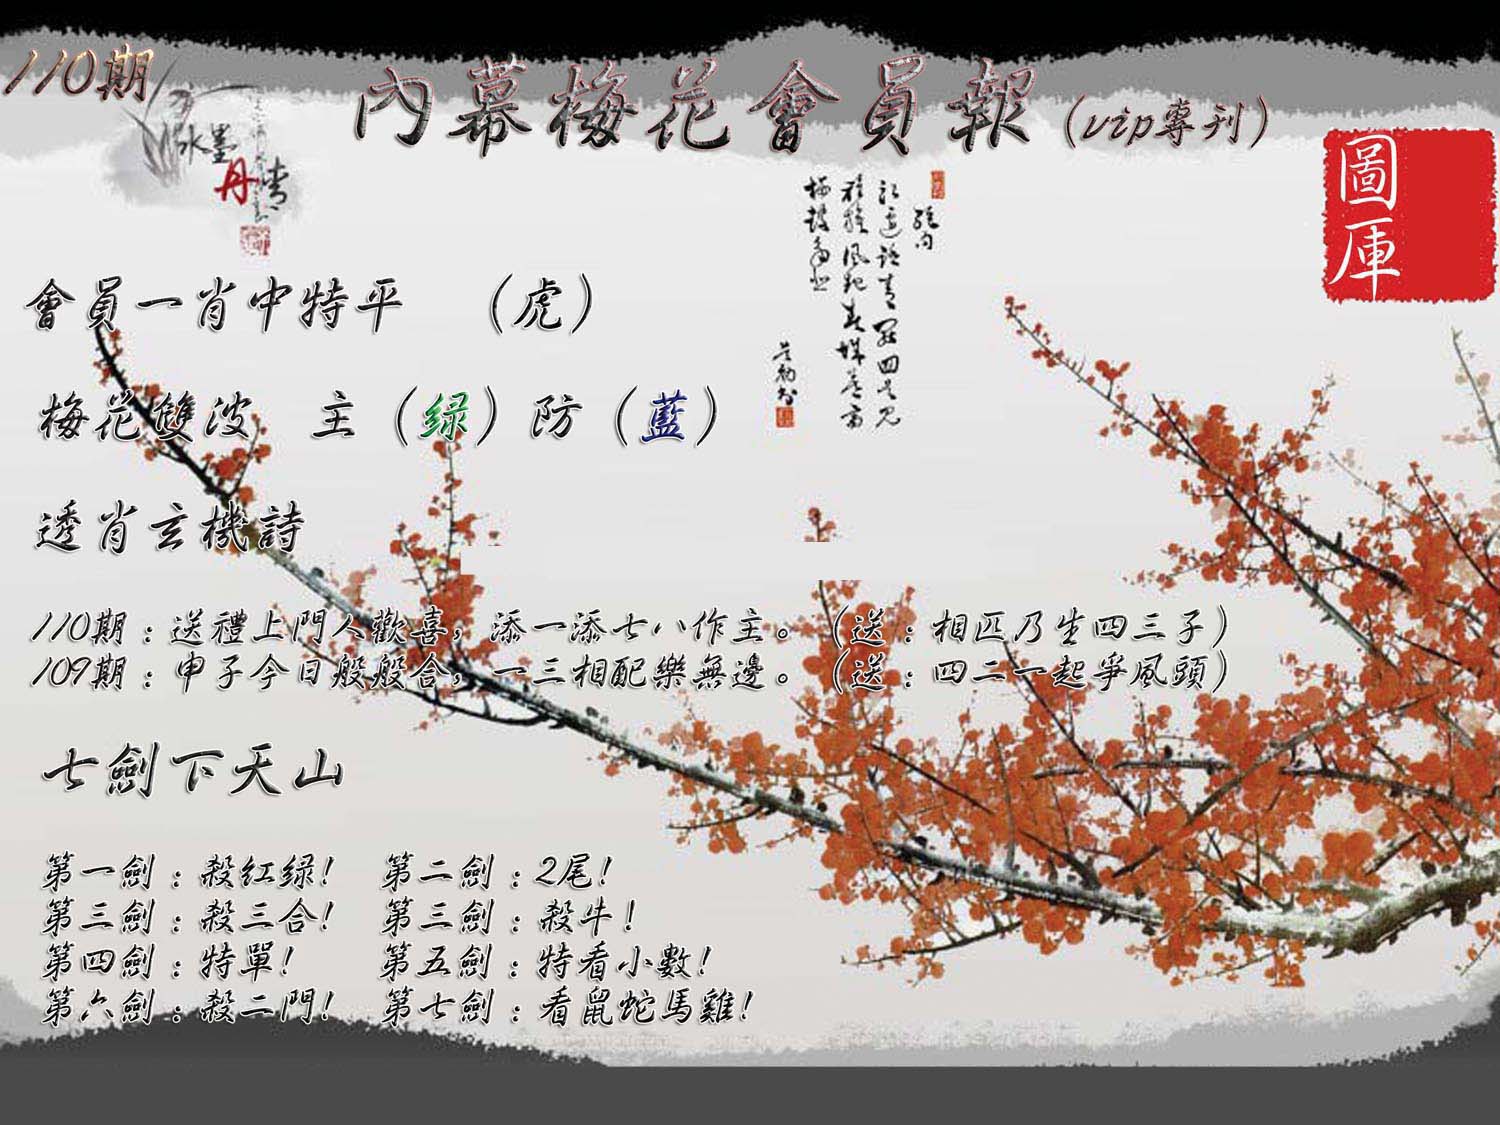 110期
內幕梅花會員報(vip專刊)
水墨
丹青
圖庫
會員一肖中特平 (虎)
梅花雙波 主(绿)防(藍)
透肖玄機詩
110期:送禮上門人歡喜,添一添七八作主。(送:相匹乃生四三子)
109期:申子今日般般合,一三相配樂無邊。(送:四二一起爭風頭)
七劍下天山
第一劍:殺紅绿! 第二劍:2尾!
第三劍:殺三合! 第三劍:殺牛!
第四劍:特單! 第五劍:特看小數!
第六劍:殺二門! 第七劍:看鼠蛇馬雞!